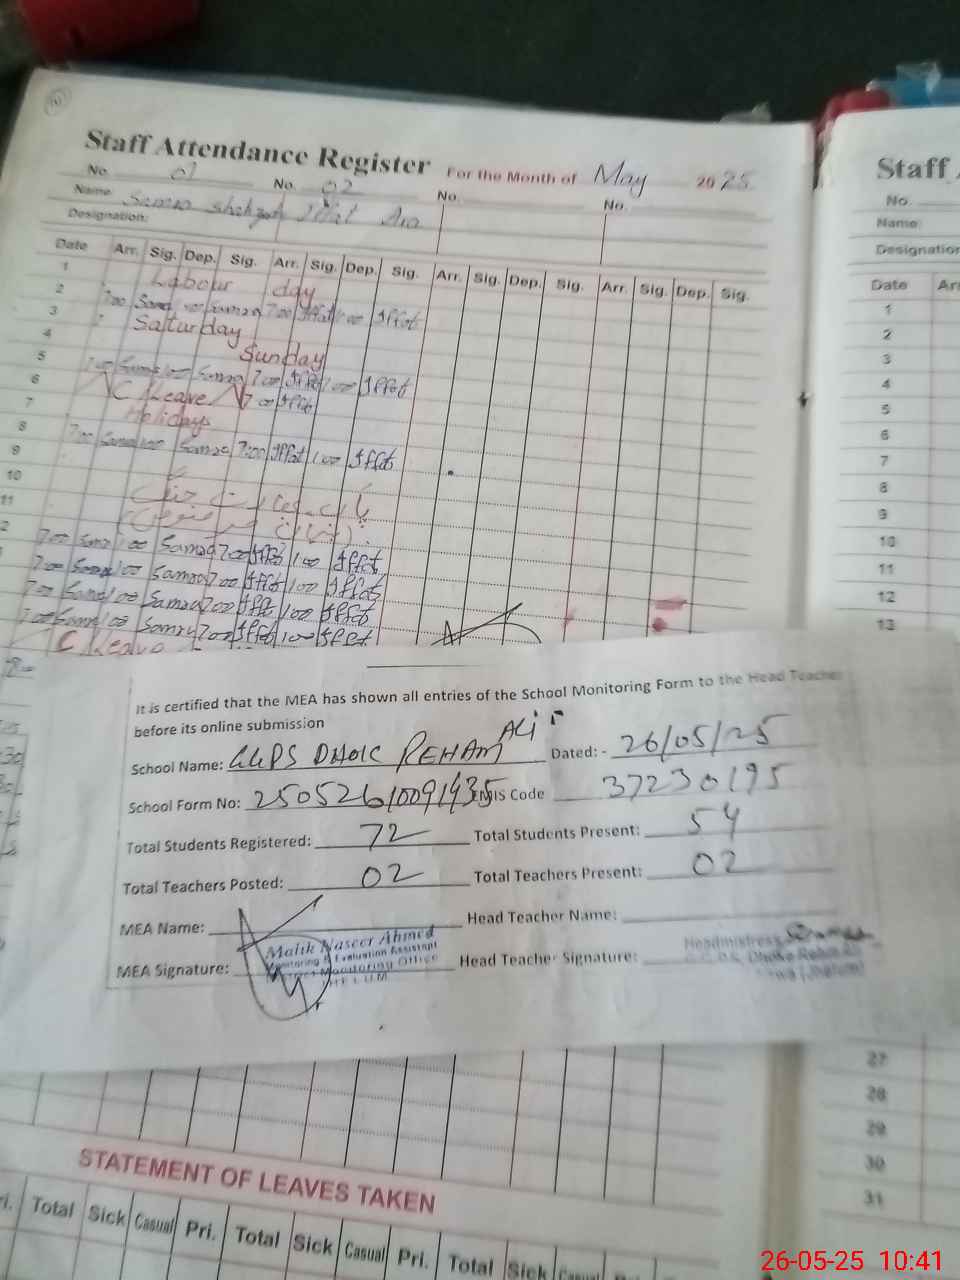 Staff Attendance Register For the Month of May 2025
No. 01 No. 02 No. No.
Name Samra Shahzadi Iffat Ara
Designation:
Date Arr. Sig. Dep. Sig. Arr. Sig. Dep. Sig. Arr. Sig. Dep. Sig. Arr. Sig. Dep. Sig.
1 Labour day
2 7:00 Samra 1:00 Samra 7:00 Iffat 1:00 Iffat
3 Saturday
4 Sunday
5 7:00 Samra 1:00 Samra 7:00 Iffat 1:00 Iffat
6 C/Leave 7:00 Iffat
7 Holidays
8 7:00 Samra 1:00 Samra 7:00 Iffat 1:00 Iffat
9
10
11
2 7:00 Samra 1:00 Samra 7:00 Iffat 1:00 Iffat
7:00 Samra 1:00 Samra 7:00 Iffat 1:00 Iffat
7:00 Samra 1:00 Samra 7:00 Iffat 1:00 Iffat
7:00 Samra 1:00 Samra 7:00 Iffat 1:00 Iffat
C/Leave
It is certified that the MEA has shown all entries of the School Monitoring Form to the Head Teacher
before its online submission
School Name: GGPS DHOK REHAM ALI Dated: - 26/05/25
School Form No: 25052610091935 EMIS Code 37230195
Total Students Registered: 72 Total Students Present: 54
Total Teachers Posted: 02 Total Teachers Present: 02
MEA Name: Head Teacher Name:
MEA Signature: Head Teacher Signature:
Malik Naseer Ahmed
Monitoring & Evaluation Assistant
District Monitoring Office
JHELUM
Headmistress
STATEMENT OF LEAVES TAKEN
Pri. Total Sick Casual Pri. Total Sick Casual Pri. Total Sick Casual
Staff
No.
Name:
Designation
Date Arr
1
2
3
4
5
6
7
8
9
10
11
12
13
27
28
29
30
31
26-05-25 10:41